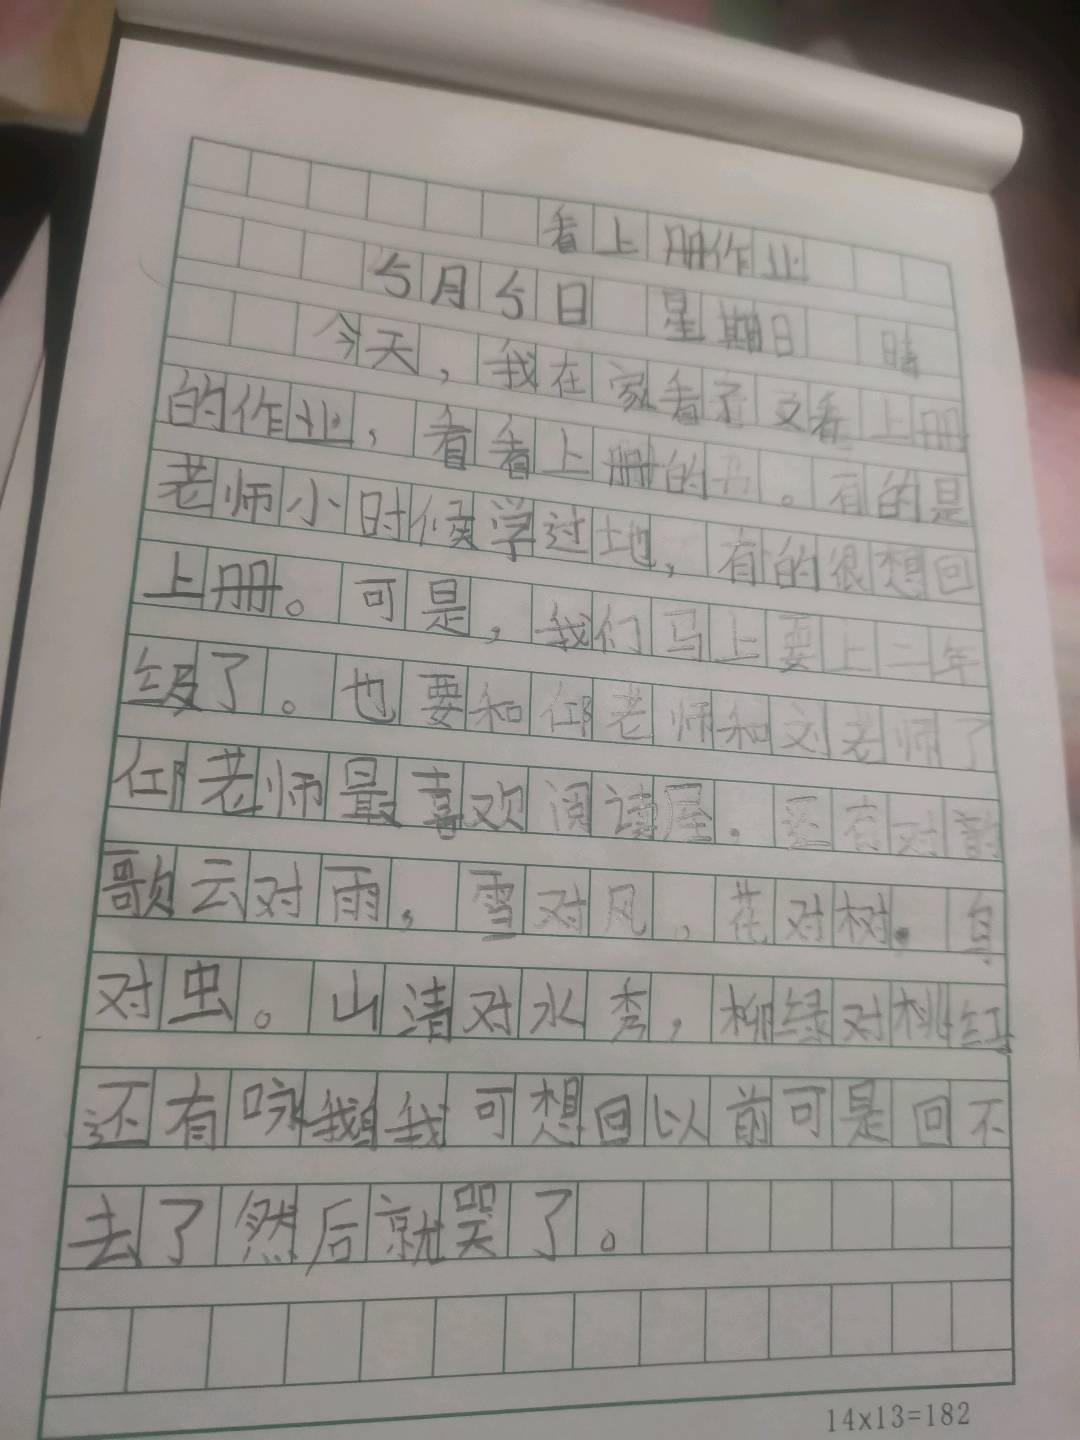 看上册作业
5月5日 星期日 晴
今天，我在家看了又看上册
的作业，看看上册的 。有的是
老师小时候学过地，有的很想回
上册。可是，我们马上要上二年
级了。也要和邱老师和刘老师了
邱老师最喜欢阅读屋。 有对韵
歌云对雨，雪对风，花对树。鸟
对虫。山清对水秀，柳绿对桃红
还有咏鹅我可想回以前可是回不
去了然后就哭了。
14x13=182